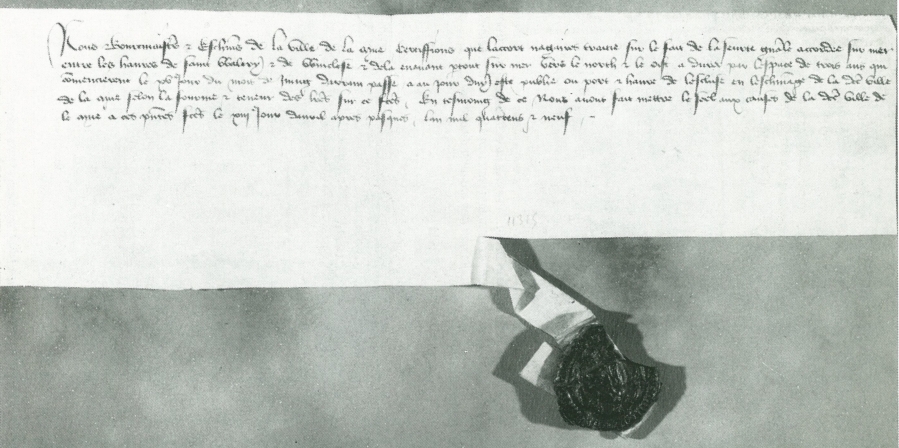 Nous Bourmaistre & Eschevins de la ville de la mue Certiffions que laccort nagaires traitie sur le fait de la seurte gnale accordee sur mer
entre les havres de saint Walery & de Winchese & dela enavant pour sur mer vers le north & le est a durer par lespace de trois ans qui
commencerent le jour du mois de Juing darrain passe a au jour duy este publie ou port & havre de lescluse en leschevinage de la dce ville
de la mue selon la fourme & teneur des lres sur ce fces En tesmoing de ce Nous avons fait mettre le seel aux causes de la dce ville de
le mue a ces pntes fces le xiii Jour davril apres pasques lan mil quattcens & neuf